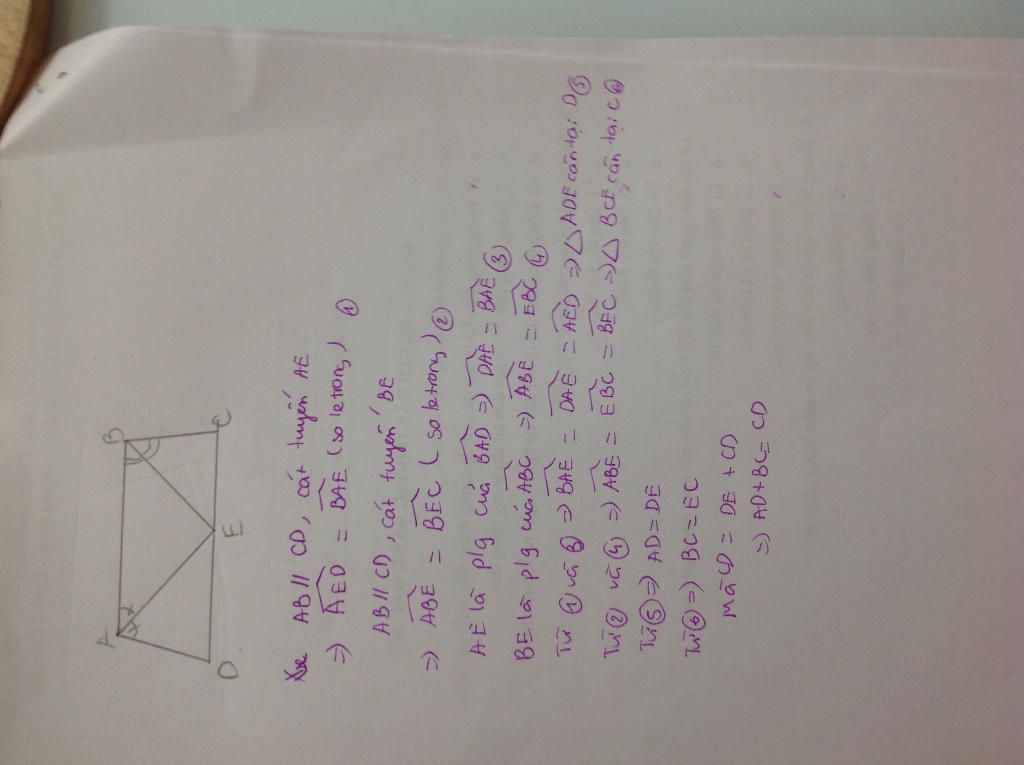 A
B
D
E
C
AB // CD, cát tuyến AE
=> AED = BAE (so le trong) ①
AB // CD, cát tuyến BE
=> ABE = BEC (so le trong) ②
AE là p/g của BAD => DAE = BAE ③
BE là p/g của ABC => ABE = EBC ④
Từ ① và ③ => BAE = DAE = AED => △ ADE cân tại D ⑤
Từ ② và ④ => ABE = EBC = BEC => △ BCE cân tại C ⑥
Từ ⑤ => AD = DE
Từ ⑥ => BC = EC
Mà CD = DE + CD
=> AD + BC = CD